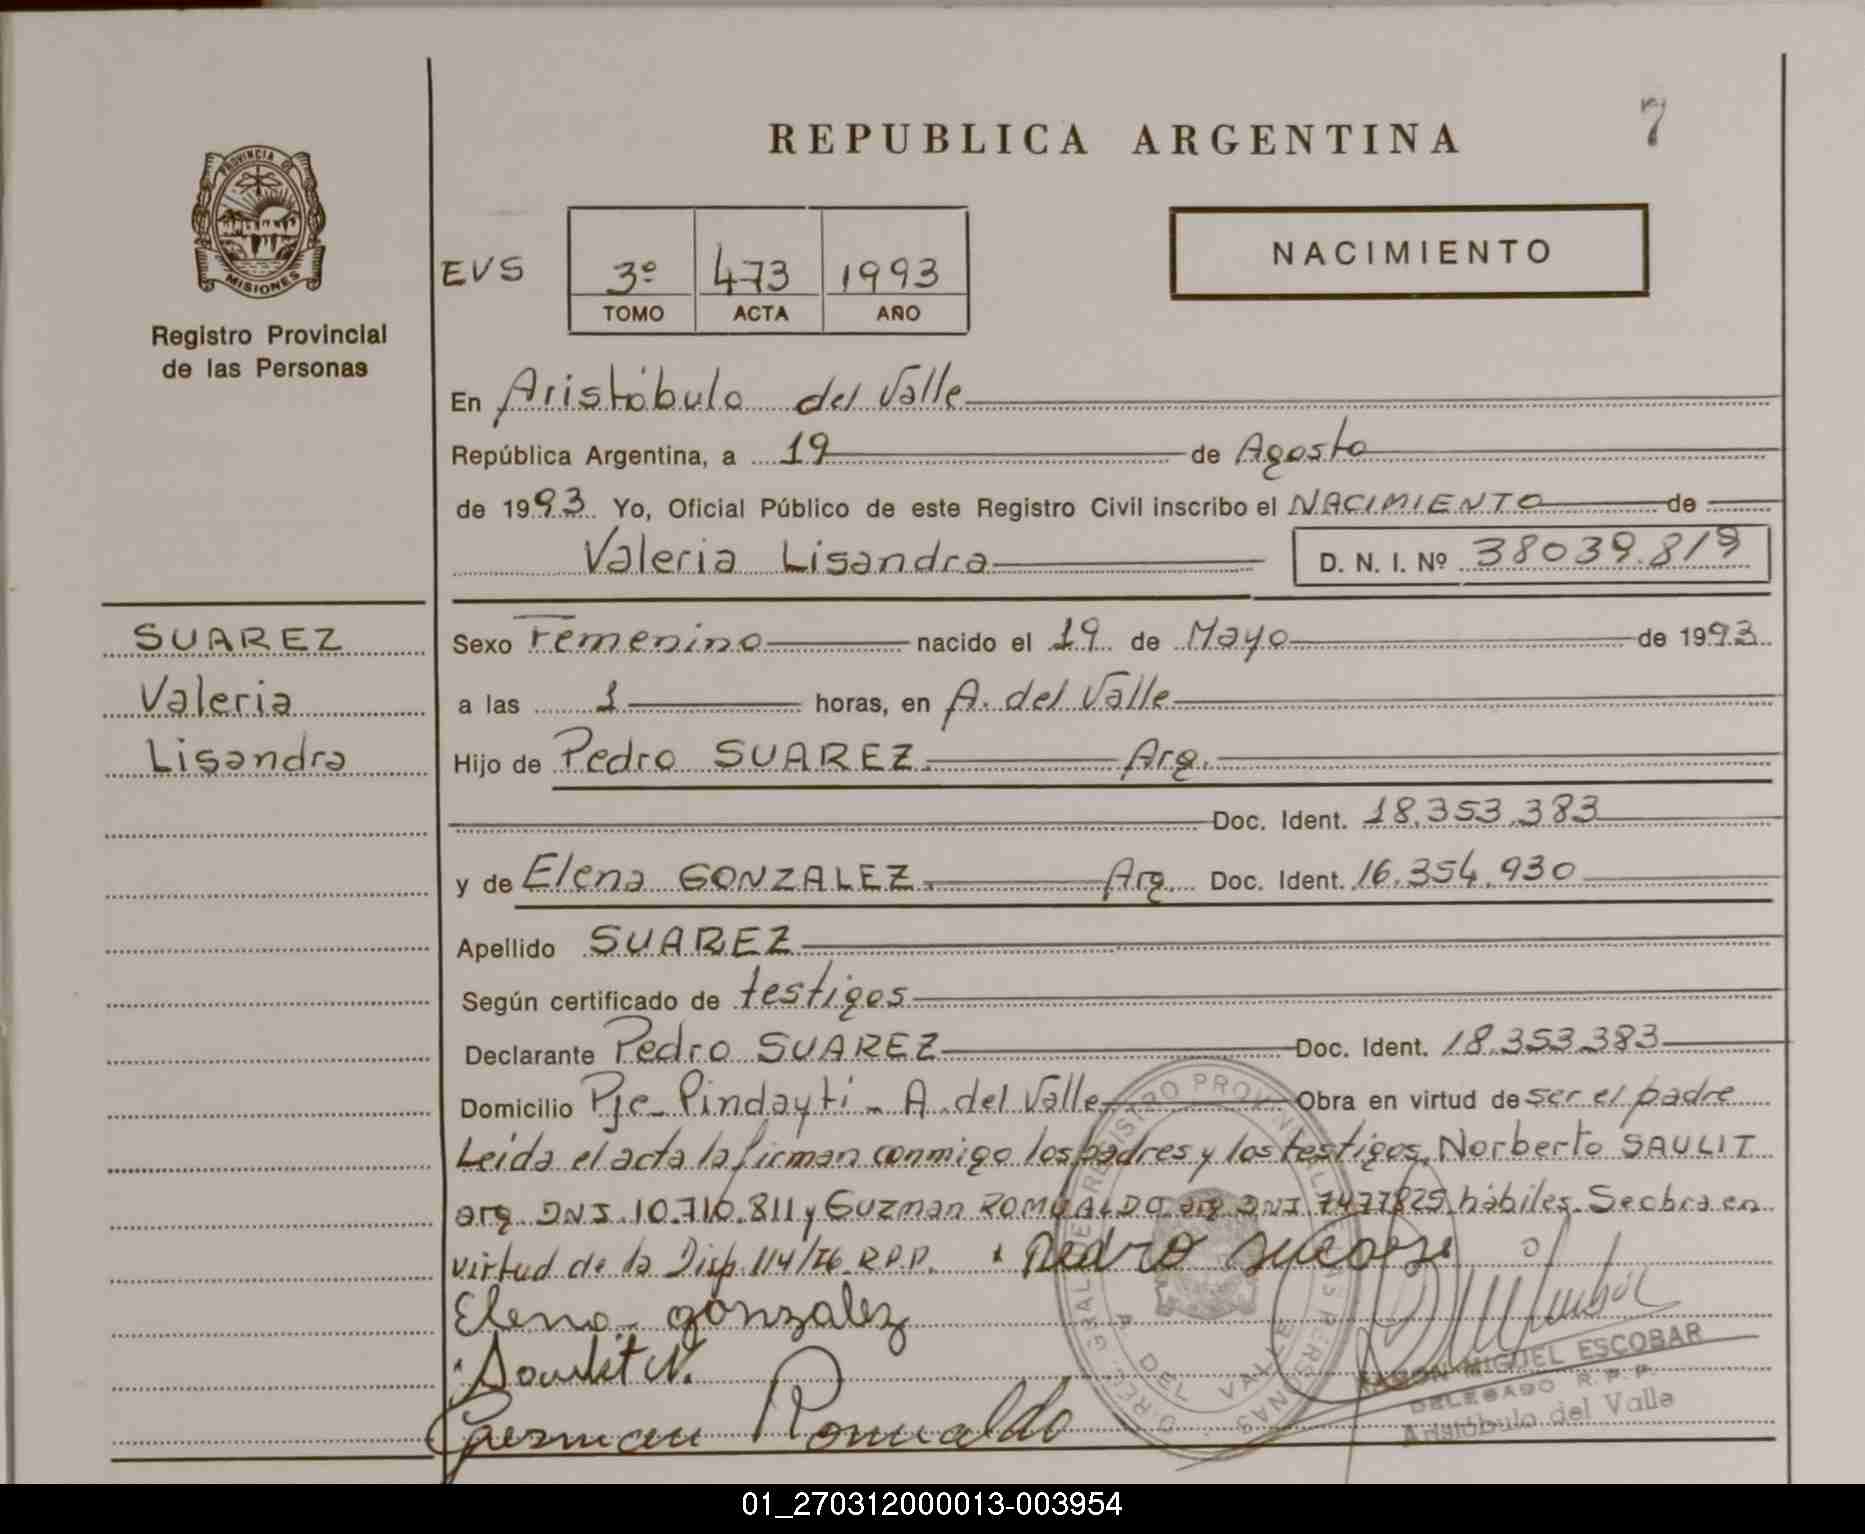 7
REPUBLICA ARGENTINA
PROVINCIA D
MISIONES
Registro Provincial
de las Personas
EVS
3º 473 1993
TOMO ACTA AÑO
NACIMIENTO
En Aristóbulo del Valle
República Argentina, a 19 de Agosto
de 1993 Yo, Oficial Público de este Registro Civil inscribo el NACIMIENTO de
Valeria Lisandra D. N. I. Nº 38039.819
SUAREZ
Valeria
Lisandra
Sexo Femenino nacido el 19 de Mayo de 1993
a las 1 horas, en A. del Valle
Hijo de Pedro SUAREZ Arg.
Doc. Ident. 18.353.383
y de Elena GONZALEZ Arg. Doc. Ident. 16.354.930
Apellido SUAREZ
Según certificado de testigos
Declarante Pedro SUAREZ Doc. Ident. 18.353.383
Domicilio Pje Pindayti - A. del Valle Obra en virtud de ser el padre
Leída el acta la firman conmigo los padres y los testigos, Norberto SAULIT
arg. DNI. 10.710.811 y Guzman ROMUALDO arg DNI 7477825 hábiles. Se obra en
virtud de la Disp. 114/76 R.P.P. Pedro suares
Elena gonzalez
Saulit N.
Guzman Romualdo
REGISTRO PROVINCIAL DE LAS PERSONAS
A DEL VALLE
RAMON MIGUEL ESCOBAR
DELEGADO R.P.P.
Aristóbulo del Valle
01_270312000013-003954